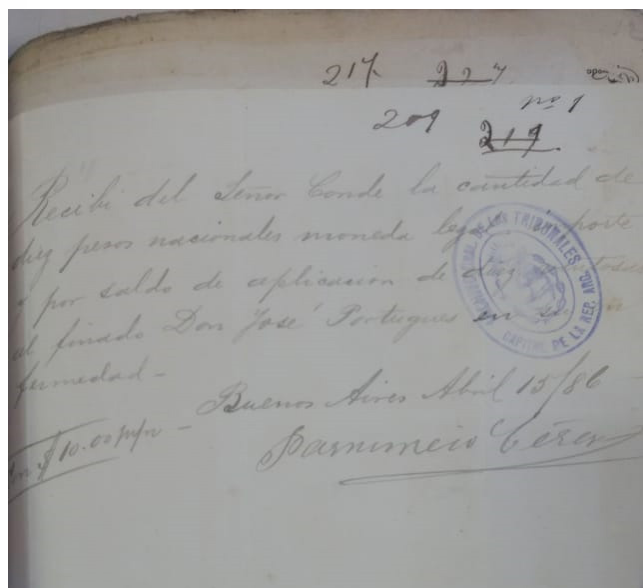 217. 227
nº 1
209 219
Recibi del Señor Conde la cantidad de
diez pesos nacionales moneda legal importe
y por saldo de aplicacion de
al finado Don José Portugues en su en
fermedad -
Buenos Aires Abril 15/86 -
Son $ 10.00 m/n -
ARCHIVO GENERAL DE LOS TRIBUNALES
CAPITAL DE LA REP. ARG.